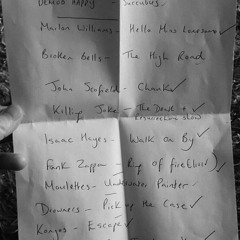 HAPPY - Succubus
Marlon Williams - Hello Miss Lonesome ✓
Broken Bells - The High Road
John Scofield - Chank ✓
Killing Joke - The Death + ✓
Resurrection Show
Isaac Hayes - Walk on By ✓
Frank Zappa - of fire
Moulettes - Underwater Painter ✓
Drowners - Pick up the Case ✓
Kongos - Escape ✓